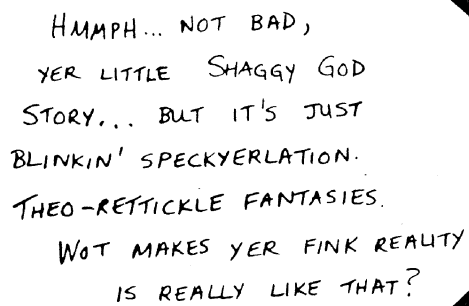 HMMPH... NOT BAD,
YER LITTLE SHAGGY GOD
STORY... BUT IT'S JUST
BLINKIN' SPECKYERLATION.
THEO-RETTICKLE FANTASIES.
WOT MAKES YER FINK REALITY
IS REALLY LIKE THAT?